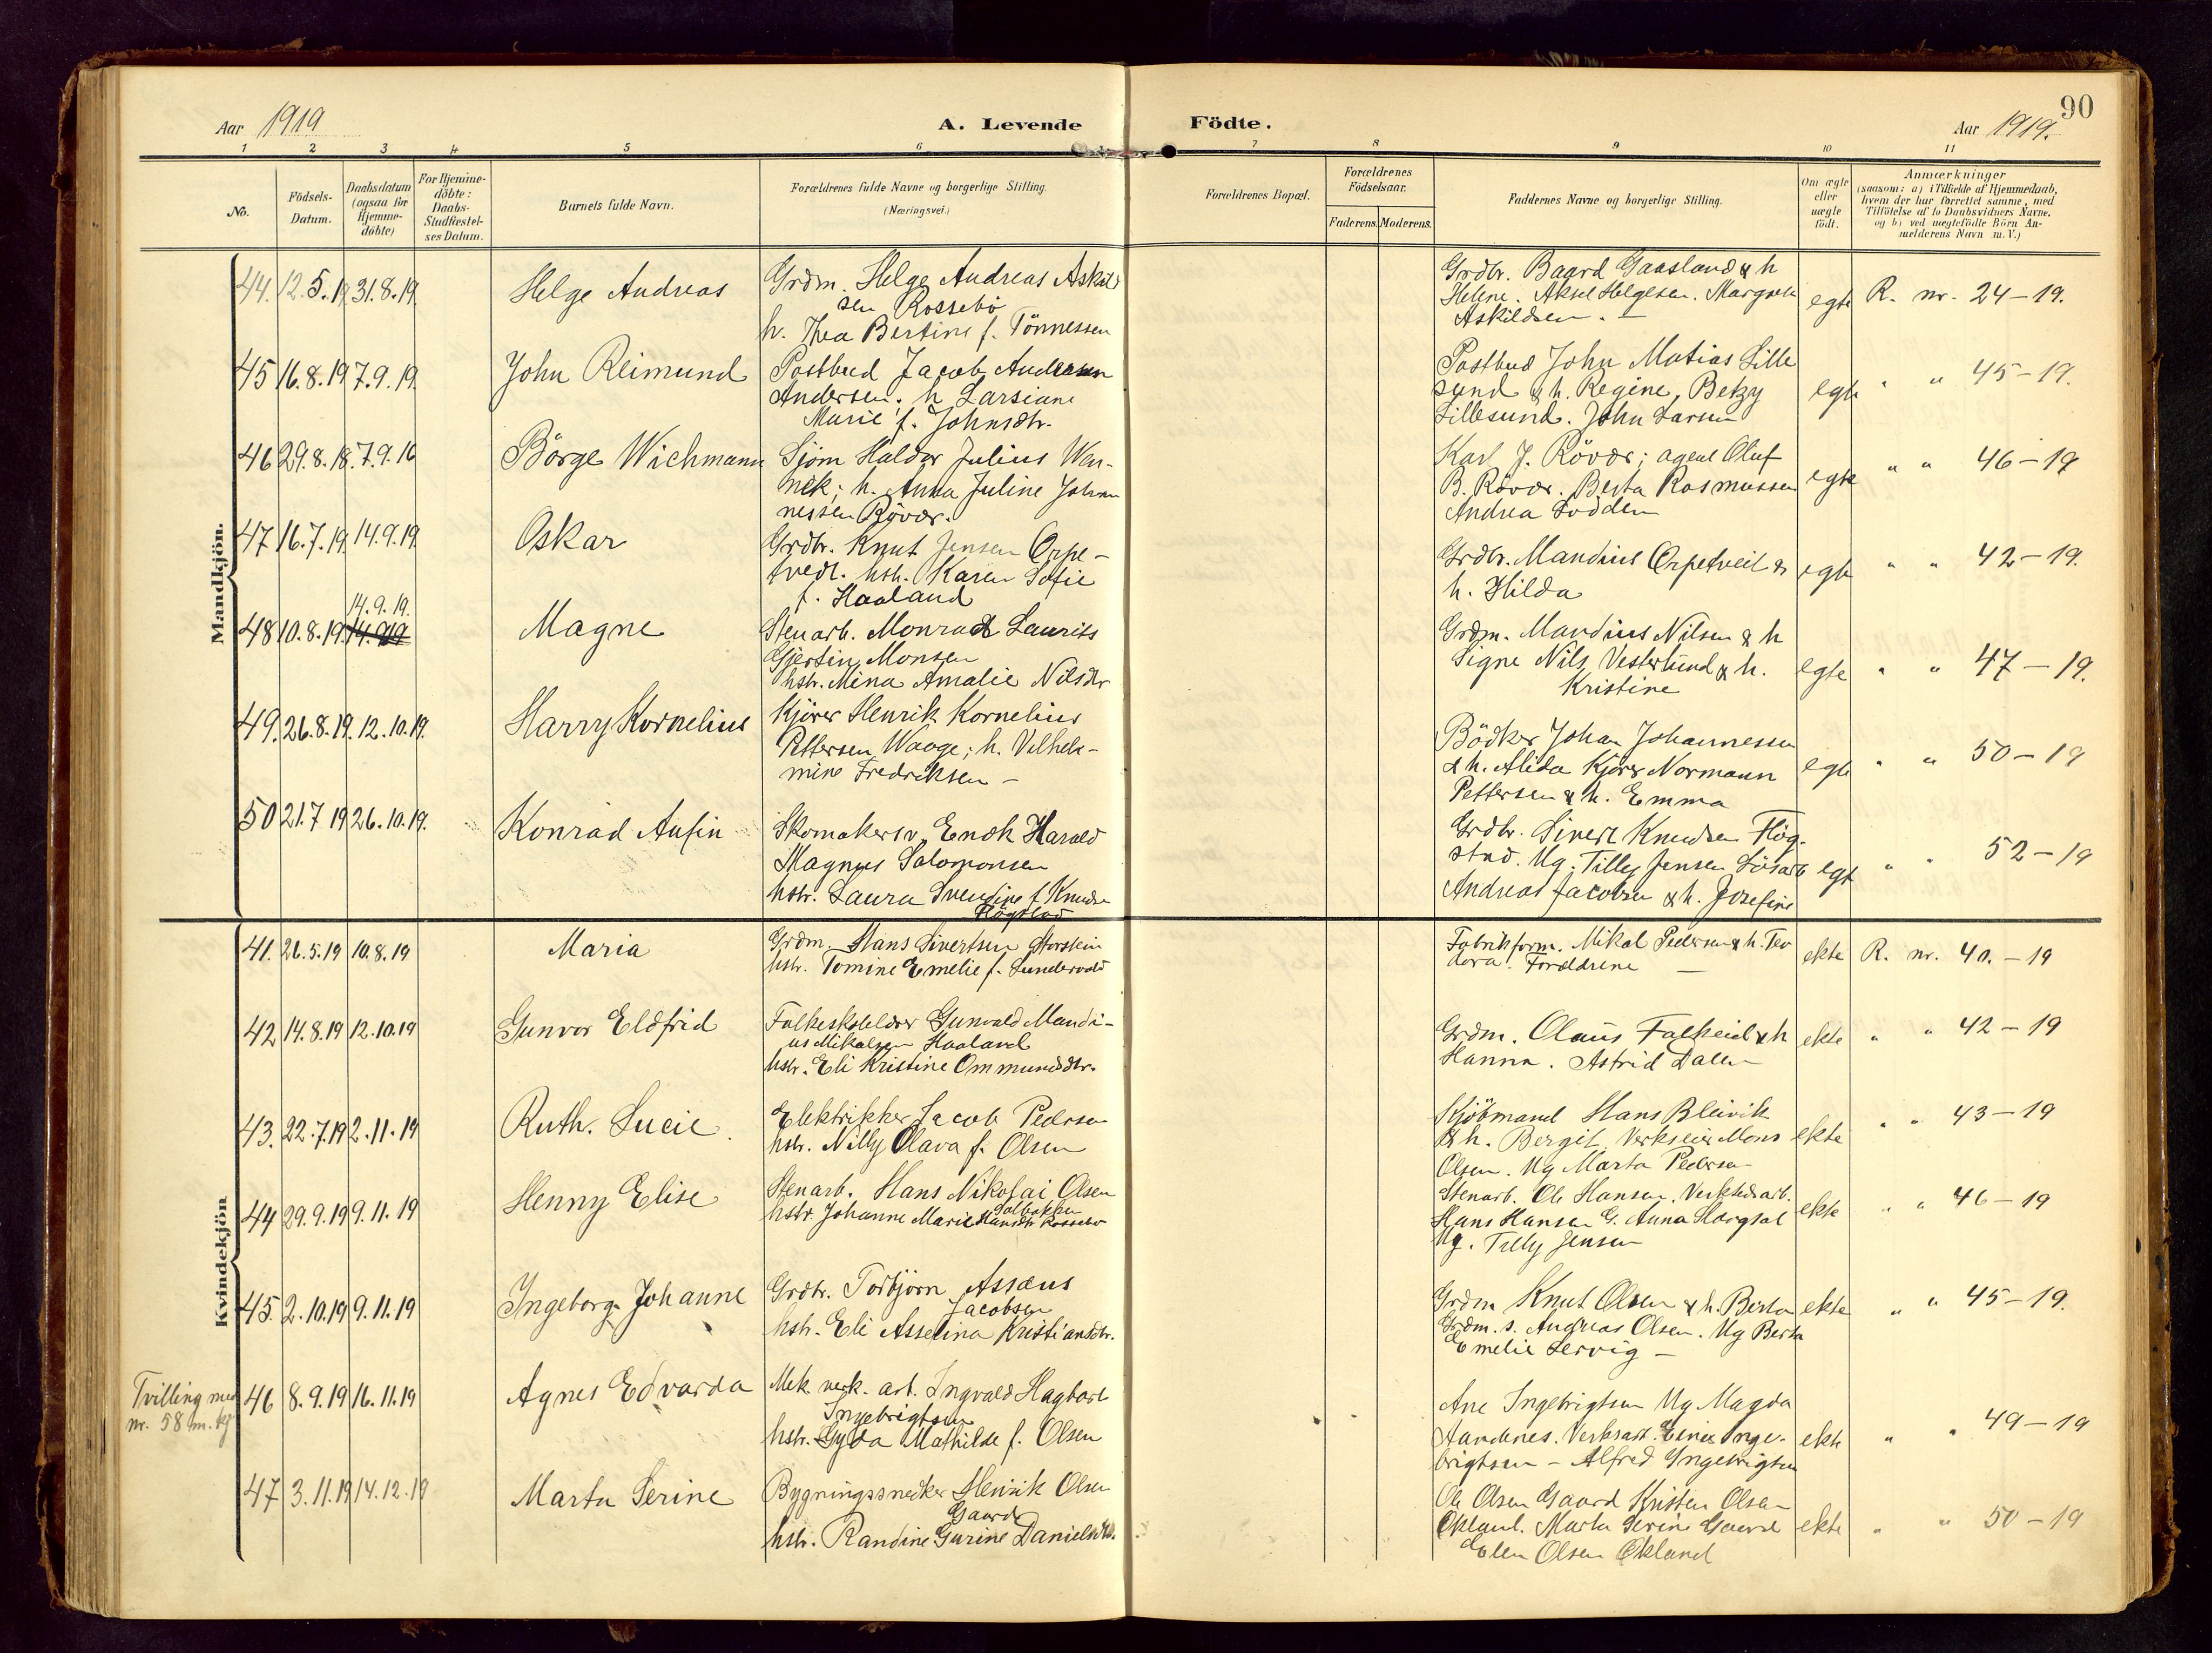 90
Aar 1919
A. Levende Födte.
Aar 1919.
1 2 3 4 5 6 7 8 9 10 11
No.
Födsels-Datum.
Daabsdatum (ogsaa for Hjemme-döbte)
For Hjemme-döbte: Daabs-Stadfæstel-ses Datum.
Barnets fulde Navn.
Forældrenes fulde Navne og borgerlige Stilling.
(Næringsvei.)
Forældrenes Bopæl.
Forældrenes Födselsaar.
Faderens. Moderens.
Faddernes Navne og borgerlige Stilling.
Om ægte eller uægte födt.
Anmærkninger
(saasom: a) i Tilfælde af Hjemmedaab,
hvem der har forrettet samme, med
Tilföielse af to Daabsvidners Navne.
og b) ved uægtefödte Börn An-
melderens Navn m. V.)
Mandkjön.
44. 12.5.19 31.8.19 Helge Andreas
Grdm. Helge Andreas Askild
sen Rossebö
h. Thea Bertine f. Tönnessen
Grdbr. Baard Gaasland & h
Helene. Aksel Helgesen. Margrete
Askildsen. —
egte R. nr. 24–19.
45 16.8.19 7.9.19 John Reimund
Postbud Jacob Andersen
Andersen. h Larsiane
Marie f. Johnsdtr.
Postbud John Matias Lille
sund & h. Regine, Betzy
Lillesund. John Larsen
egte " " 45–19.
46 29.8.18 7.9.16 Börge Wichmann
Sjöm Haldor Julius War-
nek; h. Anna Juline Johan
nessen Rövær.
Karl J. Rövær; agent Oluf
B. Rövær. Berta Rasmussen
Andrea Lodden
egte " " 46–19
47 16.7.19 14.9.19 Oskar
Grdbr. Knut Jensen Orpe-
tvedt. hstr. Karen Sofie
f. Haaland
Grdbr. Mandius Orpetveit &
h. Hilda
egte " " 42–19.
14.9.19.
48 10.8.19 14.9.19 Magne
Stenarb. Monrad Laurits
Gjertin Monsen
hstr. Mina Amalie Nilsdtr
Grdm. Mandius Nilsen & h
Signe Nils Vesterlund & h.
Kristine
egte " " 47–19.
49. 26.8.19. 12.10.19. Harry Kornelius
Kjörer Henrik Kornelius
Pettersen Waage; h. Vilhel-
mine Fredriksen —
Bödker Johan Johannessen
& h. Alida Kjörer Normann
Pettersen & h. Emma
egte " " 50–19
50 21.7 19 26.10.19. Konrad Anfin
Skomakersv. Enok Harald
Magnus Salomonsen
hstr. Laura Svendine f. Knudsen
Högstad
Grdbr. Sivert Knudsen Hög-
stad. Ug. Tilly Jensen Lösarb
Andreas Jacobsen & h. Josefine
egt " " 52–19
Kvindekjön
41. 26.5.19 10.8.19 Maria
Grdm. Hans Sivertsen Storstein
hstr. Tomine Emelie f. Sundervold
Fabrikform. Mikal Pedersen & h. Teo
dora. Forældrene —
ekte R. nr. 40.–19
42 14.8.19 12.10.19 Gunvor Eldfrid
Folkeskolelærer Gunvald Mandi-
us Mikalsen Haaland
hstr. Eli Kristine Ommundsdtr.
Grdm. Olaus Falkeid & h
Hanna. Astrid Dalen
ekte " " 42–19
43. 22.7.19 2.11.19 Ruth. Lucie.
Elektrikker Jacob Pedersen
hstr. Nilly Olava f. Olsen
Kjöbmand Hans Bleivik
& h. Bergit. Verkseier Mons
Olsen. Ug Marta Pedersen
ekte " " 43–19
44 29.9.19 9.11.19 Henny Elise
Stenarb. Hans Nikolai Olsen
Solbakken
hstr. Johanne Marie Hansdtr Rossebö
Stenarb. Ole Hansen. Verkstedsarb.
Hans Hansen G. Anna
Ug. Tilly Jensen
ekte " " 46–19
45. 2.10.19 9.11.19 Ingeborg Johanne
Grdbr. Torbjörn Assæus
Jacobsen
hstr. Eli Asselina Kristiansdtr.
Grdm Knut Olsen & h. Berta
Grdm. s. Andreas Olsen. Ug Berta
Emelie Lervig —
ekte " " 45–19.
Tvilling med
nr. 58 m. kj
46 8.9.19 16.11.19 Agnes Edvarda
Mek. verk. arb. Ingvald Hagbart
Ingebrigtsen
hstr. Gyda Mathilde f. Olsen
Ane Ingebrigtsen Ug Magda
Aandenes. Verksarb. Einar Inge-
brigtsen – Alfred Ingebrigtsen
ekte " " 49–19
47 3.11.19 14.12.19 Marta Serine
Bygningssnedker Henrik Olsen
Gaard
hstr. Randine Gurine Danielsdtr.
Ole Olsen Gaard Kristen Olsen
Økland. Marta Serine Gaard
Elen Olsen Økland
ekte " " 50–19